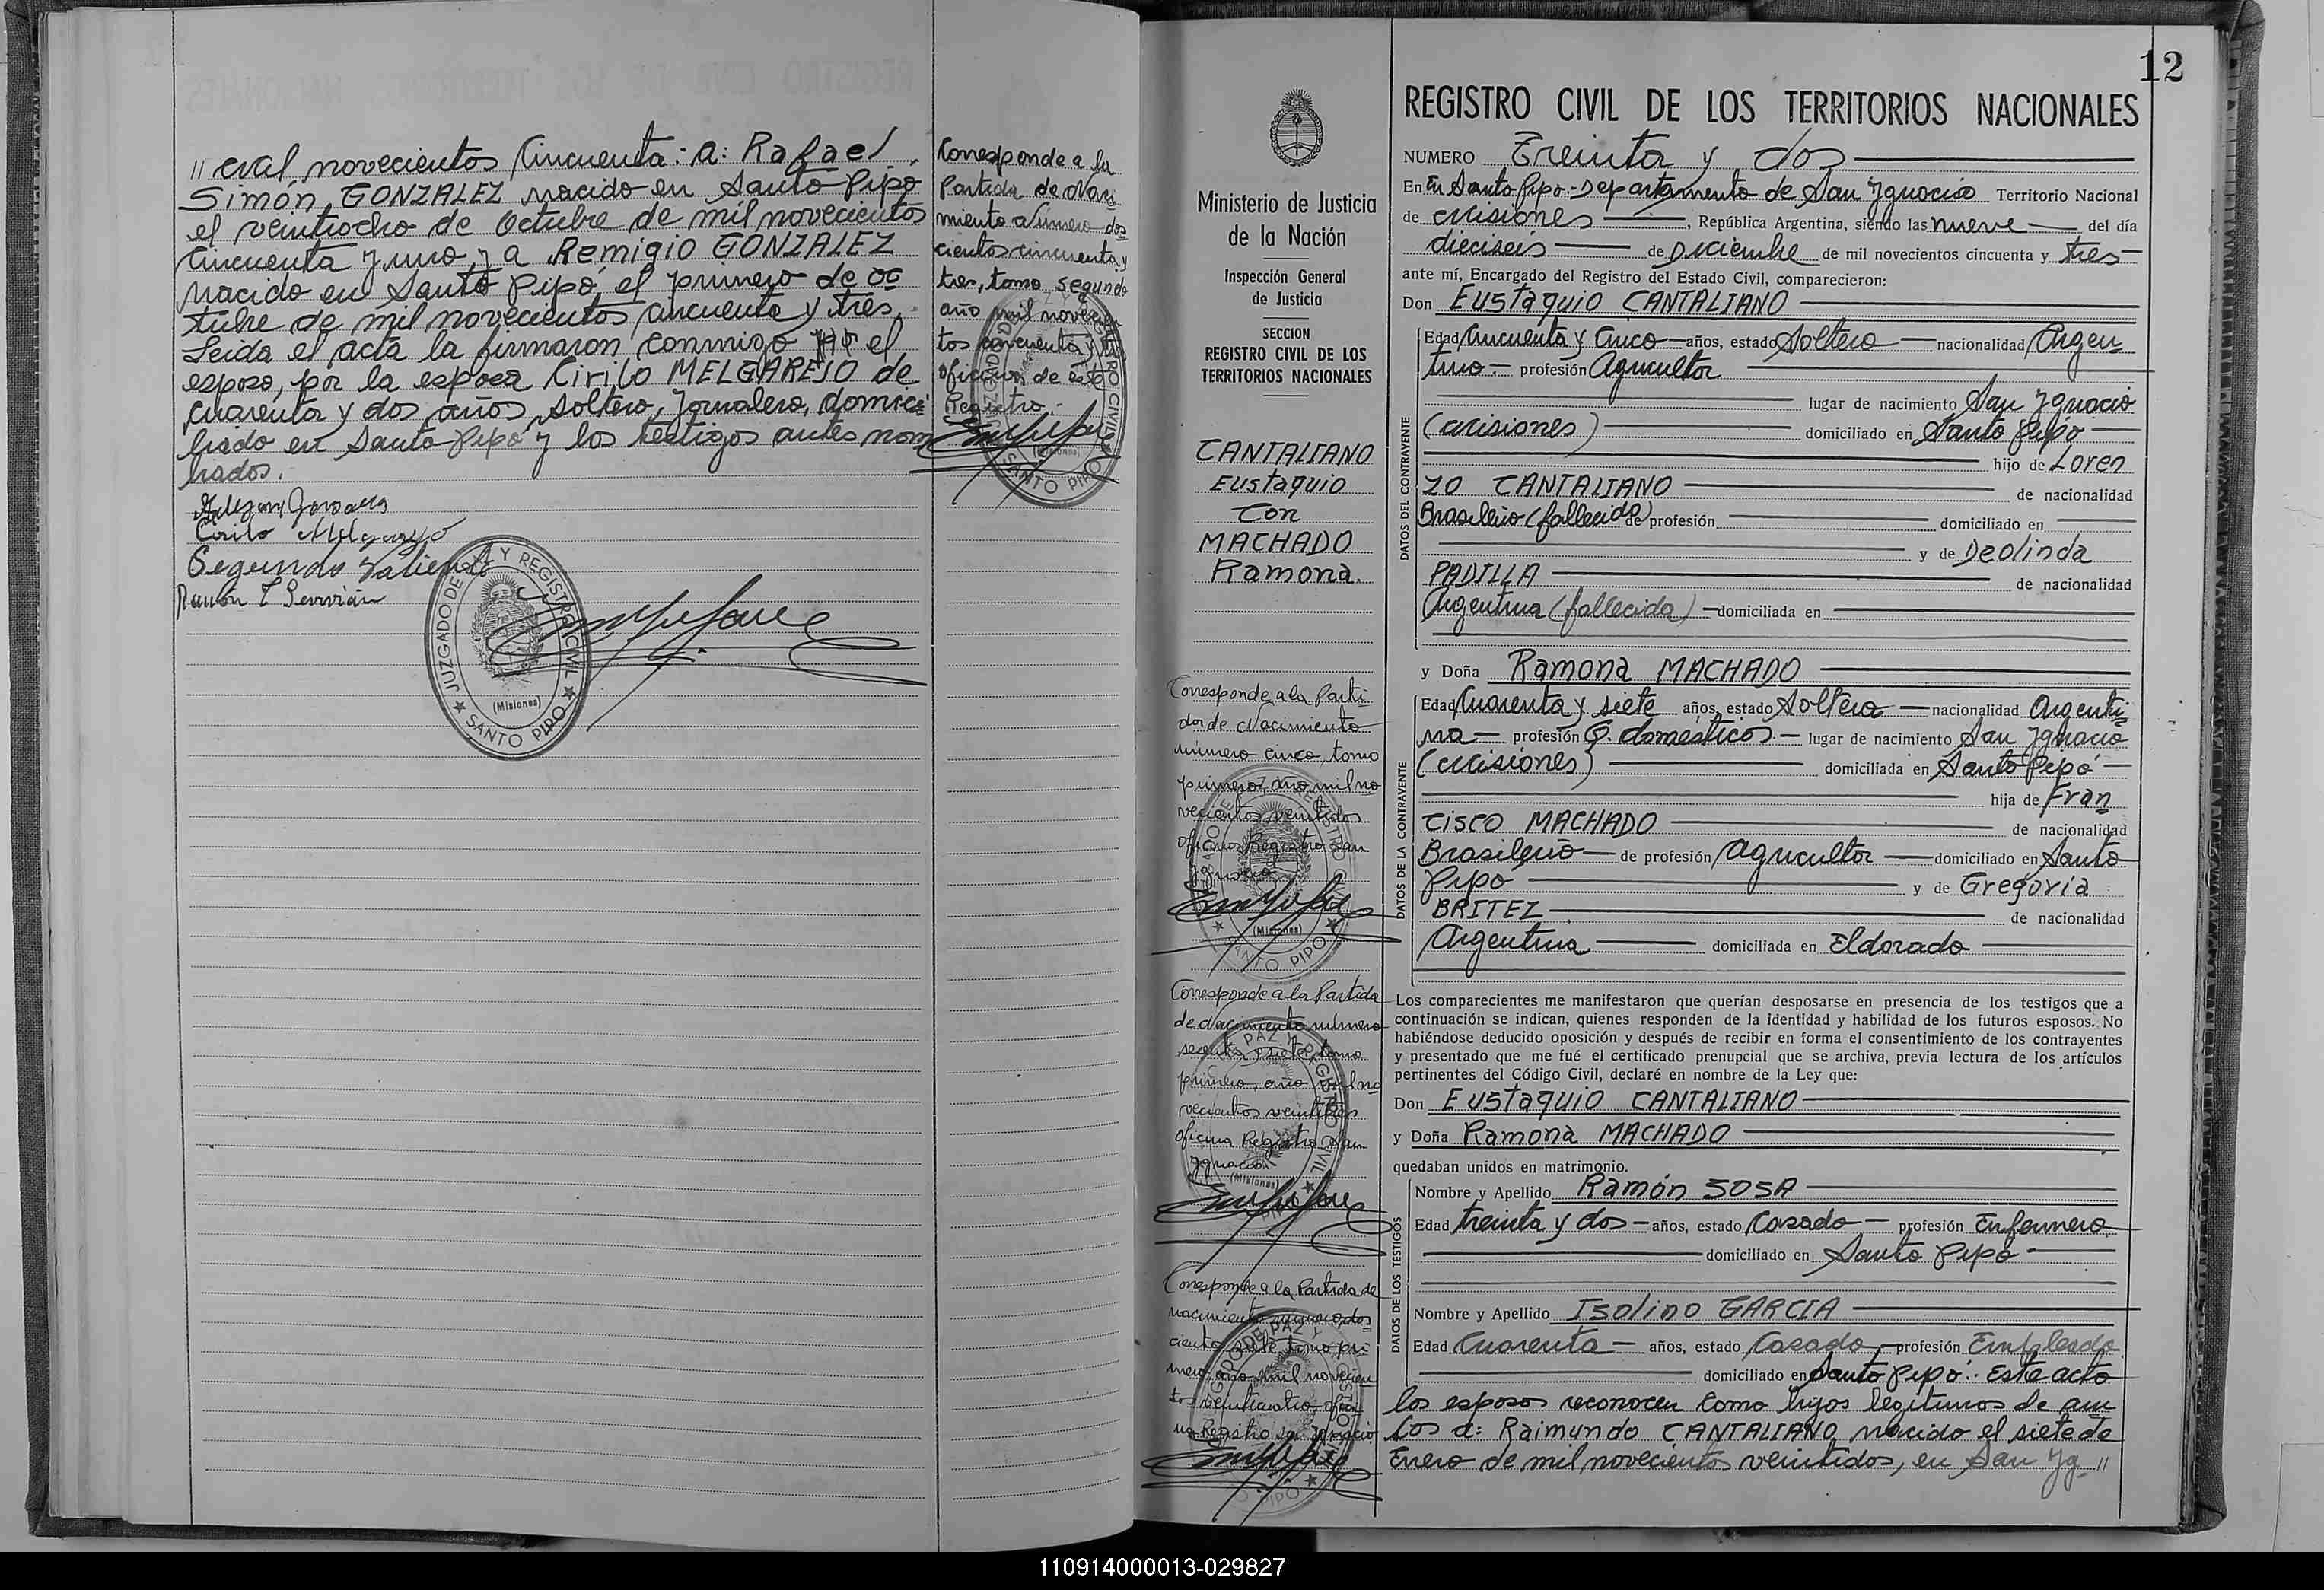 12
" cval novecientos Cincuenta: a: Rafael
Simón GONZALEZ nacido en Santo Pipó
el veintiocho de Octubre de mil novecientos
Cincuenta y uno y a Remigio GONZALEZ
nacido en Santo Pipó el primero de Oc
tubre de mil novecientos cincuenta y tres.
Leida el acta la firmaron conmigo el
esposo, por la esposa Cirilo MELGAREJO de
cuarenta y dos años, soltero, jornalero, domici=
liado en Santo Pipó y los testigos antes nom
brados.
Cirilo Melgarejo
Segundo
Ramón
JUZGADO DE PAZ Y REGISTRO CIVIL
(Misiones)
SANTO PIPO
Corresponde a la
Partida de Naci
miento Número dos
cientos cincuenta y
tres, tomo segundo
año mil novecien
tos cincuenta y
oficina de este
Registro.-
SANTO PIPO
Ministerio de Justicia
de la Nación
Inspección General
de Justicia
SECCION
REGISTRO CIVIL DE LOS
TERRITORIOS NACIONALES
CANTALIANO
Eustaquio
Con
MACHADO
Ramona.
Corresponde a la Parti
da de Nacimiento
número cinco, tomo
primero, año mil no
vecientos veintidos
oficina Registro San
Ignacio
(Misiones)
SANTO PIPO
Corresponde a la Partida
de Nacimiento número
sesenta y siete tomo
primero, año mil no
vecientos
oficina Registro San
Ignacio
(Misiones)
Corresponde a la Partida de
nacimiento número dos
cientos siete, tomo pri
mero, año mil novecien
tos veinticuatro, ofici
na Registro San Ignacio
REGISTRO CIVIL DE LOS TERRITORIOS NACIONALES
NUMERO Treinta y dos
En En Santo Pipo.-Departamento de San Ygnacio Territorio Nacional
de Misiones, República Argentina, siendo las nueve del día
dieciseis de Diciembre de mil novecientos cincuenta y tres
ante mí, Encargado del Registro del Estado Civil, comparecieron:
Don Eustaquio CANTALIANO
DATOS DEL CONTRAYENTE
Edad Cincuenta y Cinco años, estado Soltero nacionalidad Argen
tino.- profesión Agricultor
lugar de nacimiento San Ygnacio
(Misiones) domiciliado en Santo Pipó
hijo de Loren
zo CANTALIANO de nacionalidad
Brasileño (fallecido) de profesión domiciliado en
y de Deolinda
PADILLA de nacionalidad
Argentina (fallecida) domiciliada en
y Doña Ramona MACHADO
DATOS DE LA CONTRAYENTE
Edad Cuarenta y siete años, estado Soltera nacionalidad Argenti
na profesión Q. domésticos.- lugar de nacimiento San Ygnacio
(Misiones) domiciliada en Santo Pipó
hija de Fran
cisco MACHADO de nacionalidad
Brasileño de profesión Agricultor domiciliado en Santo
Pipó y de Gregoria
BRITEZ de nacionalidad
Argentina domiciliada en Eldorado
Los comparecientes me manifestaron que querían desposarse en presencia de los testigos que a
continuación se indican, quienes responden de la identidad y habilidad de los futuros esposos. No
habiéndose deducido oposición y después de recibir en forma el consentimiento de los contrayentes
y presentado que me fué el certificado prenupcial que se archiva, previa lectura de los artículos
pertinentes del Código Civil, declaré en nombre de la Ley que:
Don Eustaquio CANTALIANO
y Doña Ramona MACHADO
quedaban unidos en matrimonio.
DATOS DE LOS TESTIGOS
Nombre y Apellido Ramón SOSA
Edad treinta y dos años, estado Casado profesión Enfermero
domiciliado en Santo Pipó
Nombre y Apellido Isolino GARCIA
Edad Cuarenta años, estado Casado profesión Empleado
domiciliado en Santo Pipó.- Este acto
los esposos reconocen como hijos legitimos de am
bos a: Raimundo CANTALIANO nacido el siete de
Enero de mil novecientos veintidos, en San Yg "
110914000013-029827